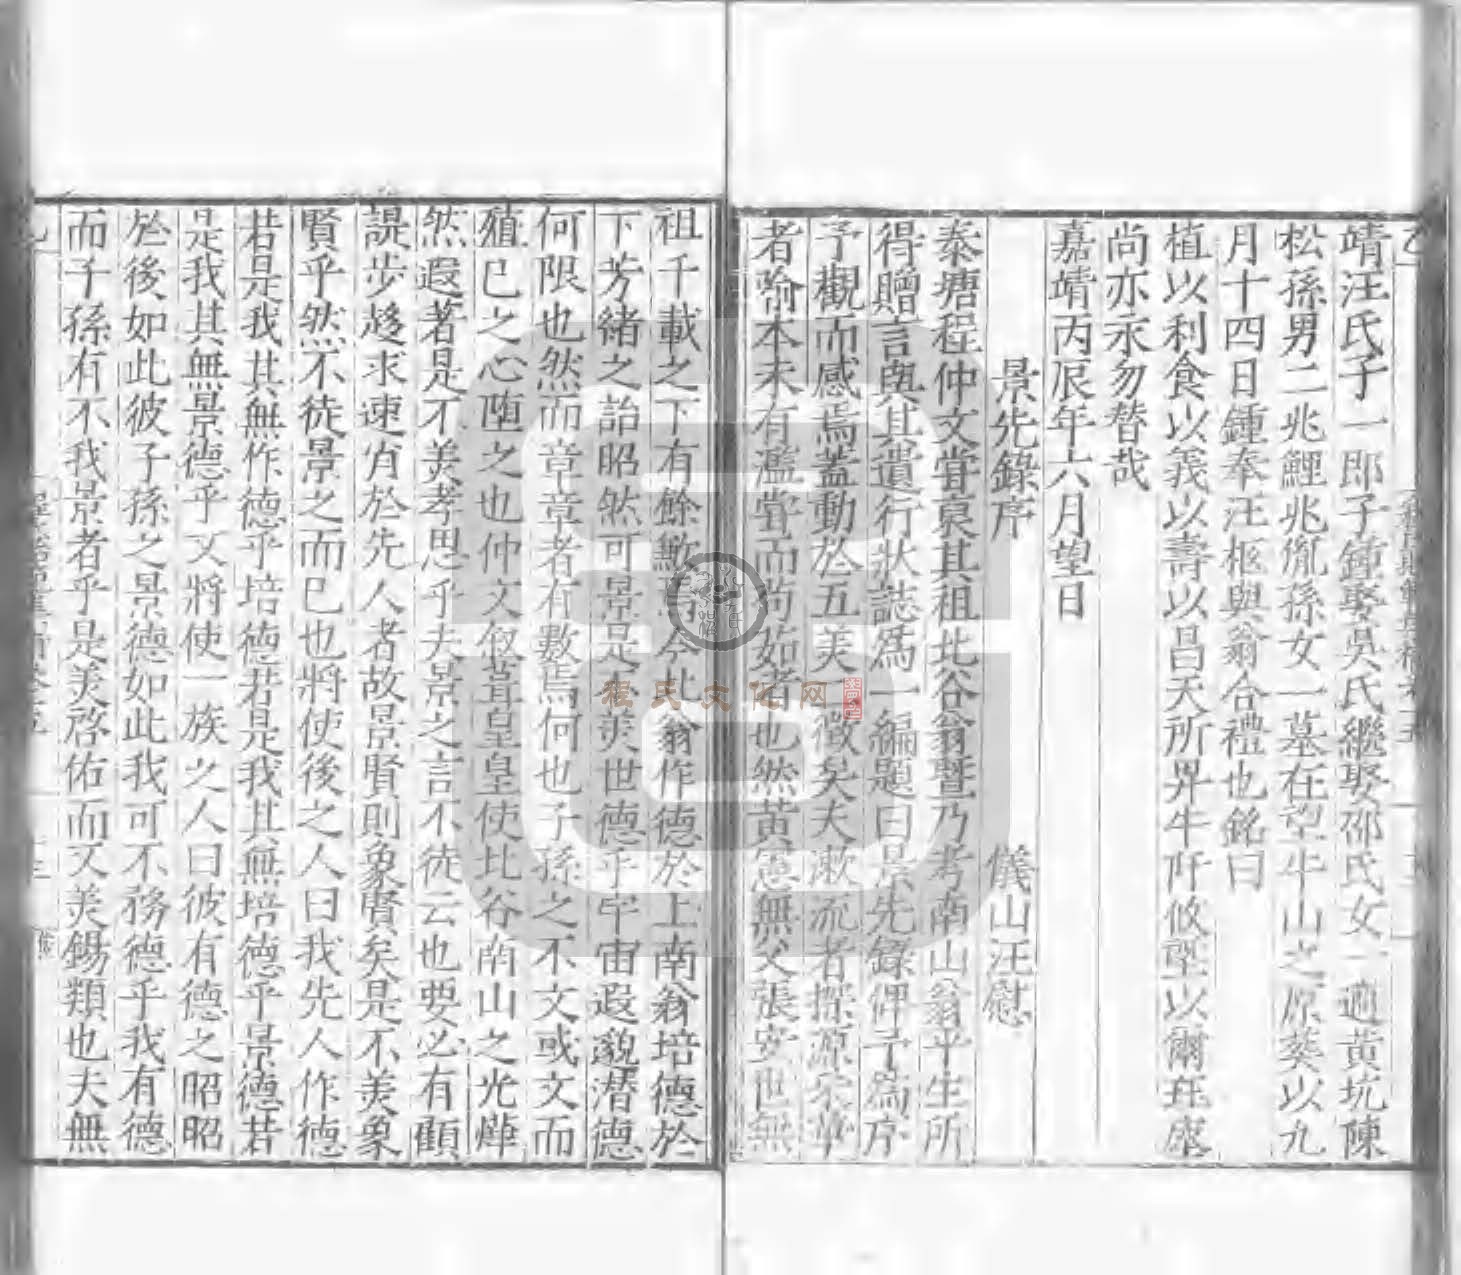 靖汪氏子一郎子鍾娶吳氏繼娶邵氏女一適黄坑陳
松孫男二兆鯉兆胤孫女一墓在望牛山之原葵以九
月十四日鍾奉汪柩與翁合禮也銘曰
植以利食以義以壽以昌天所畀牛阡攸墍以爾玨座
尚亦永勿替哉
嘉靖丙辰年六月望日
景先錄序 儀山汪慰
泰塘程仲文甞裒其祖北谷翁暨乃考南山翁平生所
得贈言與其遺行狀誌爲一編題曰景先錄俾予爲序
予觀而感焉蓋動於五美二徵矣夫漱流者探源采華
者喻本未有濫甞而尚茹者也然黄憲無父張安世無
祖千載之下有餘歉焉今北翁作德於上南翁培德於
下芳緒之詒昭然可景是不羙世德乎宇宙遐邈潜德
何限也然而章章者有數焉何也子孫之不文或文而
殖已之心堕之也仲文叙葺皇皇使北谷南山之光燁
然遐著是不羙孝思乎夫景之言不徒云也要必有顧
諟步趍求速肖於先人者故景賢則象賢矣是不羙象
賢乎然不徒景之而已也將使後之人曰我先人作德
若是我其無作德乎培德若是我其無培德乎景德若
是我其無景德乎又將使一族之人曰彼有德之昭昭
於後如此彼子孫之景德如此我可不務德乎我有德
而子孫有不我景者乎是羙啓佑而又羙錫類也夫無
程氏文化网